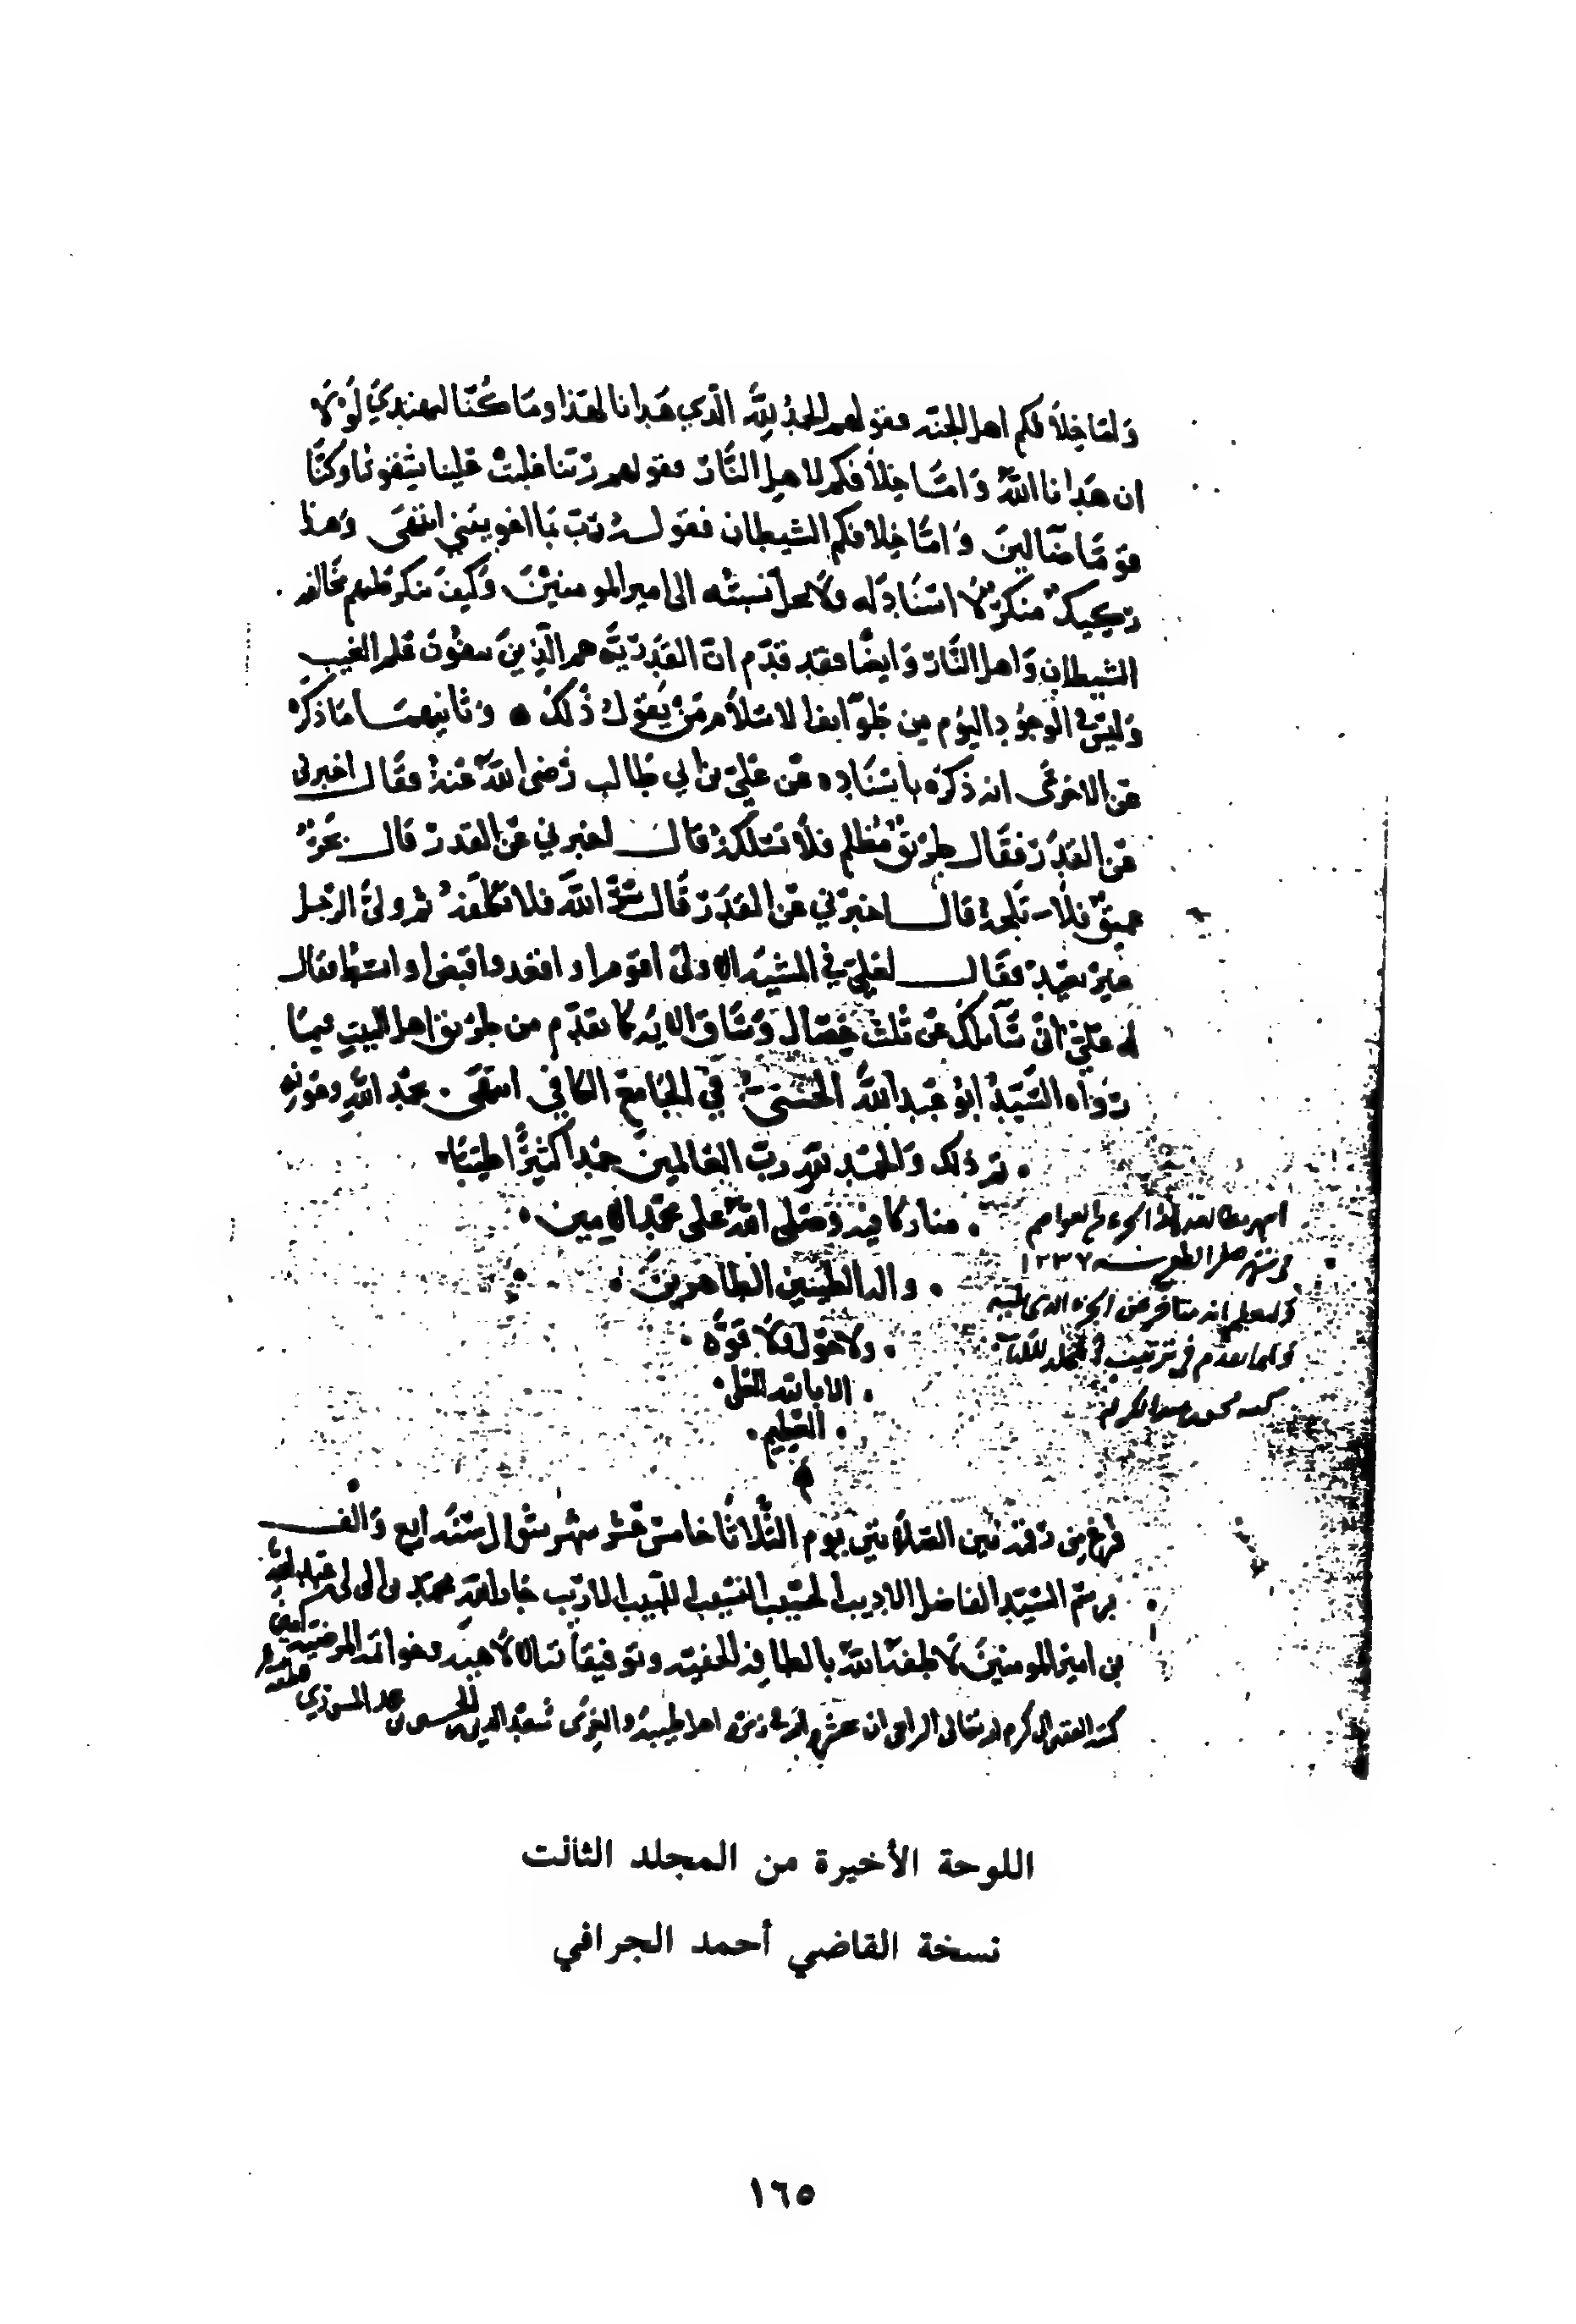 ولما خلافكم اهل الجنة فقولهم الحمد لله الذي هدانا لهذا وما كنا لنهتدي لولا
ان هدانا الله وامّا خلافكم لاهل النار فقولهم ربنا غلبت علينا شقوتنا وكنا
قومًا ضالين وامّا خلافكم الشيطان فقوله رب بما اغويتني انتهى وهذا
ركيك منكر لا اسناد له ولا تحل نسبته الى امير المومنين وكيف ينكر عليهم مخالفة
الشيطان واهل النار وايضًا فقد قدّم انّ القدرية هم الذين ينفون علم الغيب
وليس في الوجود اليوم من طوايف الاسلام من يقول ذلك ه وثانيهما ما ذكره
عن الاخرى انه ذكره باسناده عن علي بن ابي طالب رضي الله عنه فقال اخبرني
عن القدر فقال طريق مظلم فلا تسلكه قال اخبرني عن القدر قال بحرٌ
عميق فلا تلجه قال اخبرني عن القدر قال سرّ الله فلا تكلفه ثم ولى الرجل
غير بعيد فقال لعلي في المشية الاولى اقوم واقعد واقبض وابسط فقال
له علي اني سائلك عن ثلث خصال وساق الاية كما تقدّم من طريق اهل البيت فيما
رواه السيّد ابو عبد الله الحسني في الجامع الكافي انتهى . بحمد الله وعونه
. تم ذلك والحمد لله رب العالمين حمدا كثيرًا طيبًا .
. مباركا فيه وصلى الله على محمد الامين .
. واله الطيبين الطاهرين .
. ولا حول ولا قوّة .
. الا بالله العلي .
. العظيم .
في شهر صفر سنه ١٢٣٧
وليعلم انه متاخر عن الجزء الذي
فرغ من رقمه بين الصلاتين يوم الثلاثا خامس عشر شهر شوال سنة اربع والف
برسم السيّد الفاضل الاديب الحسيب النسيب
بن امير المومنين لاطفنا الله بالطافه الخفيه وتوفيقاته الالاهيه
كتبه الفقير الى كرم الله تعالى الراجي ان يحشره الله في زمرة اهل طيبة والغرى سعد الدين
اللوحة الأخيرة من المجلد الثالث
نسخة القاضي أحمد الجرافي
١٦٥